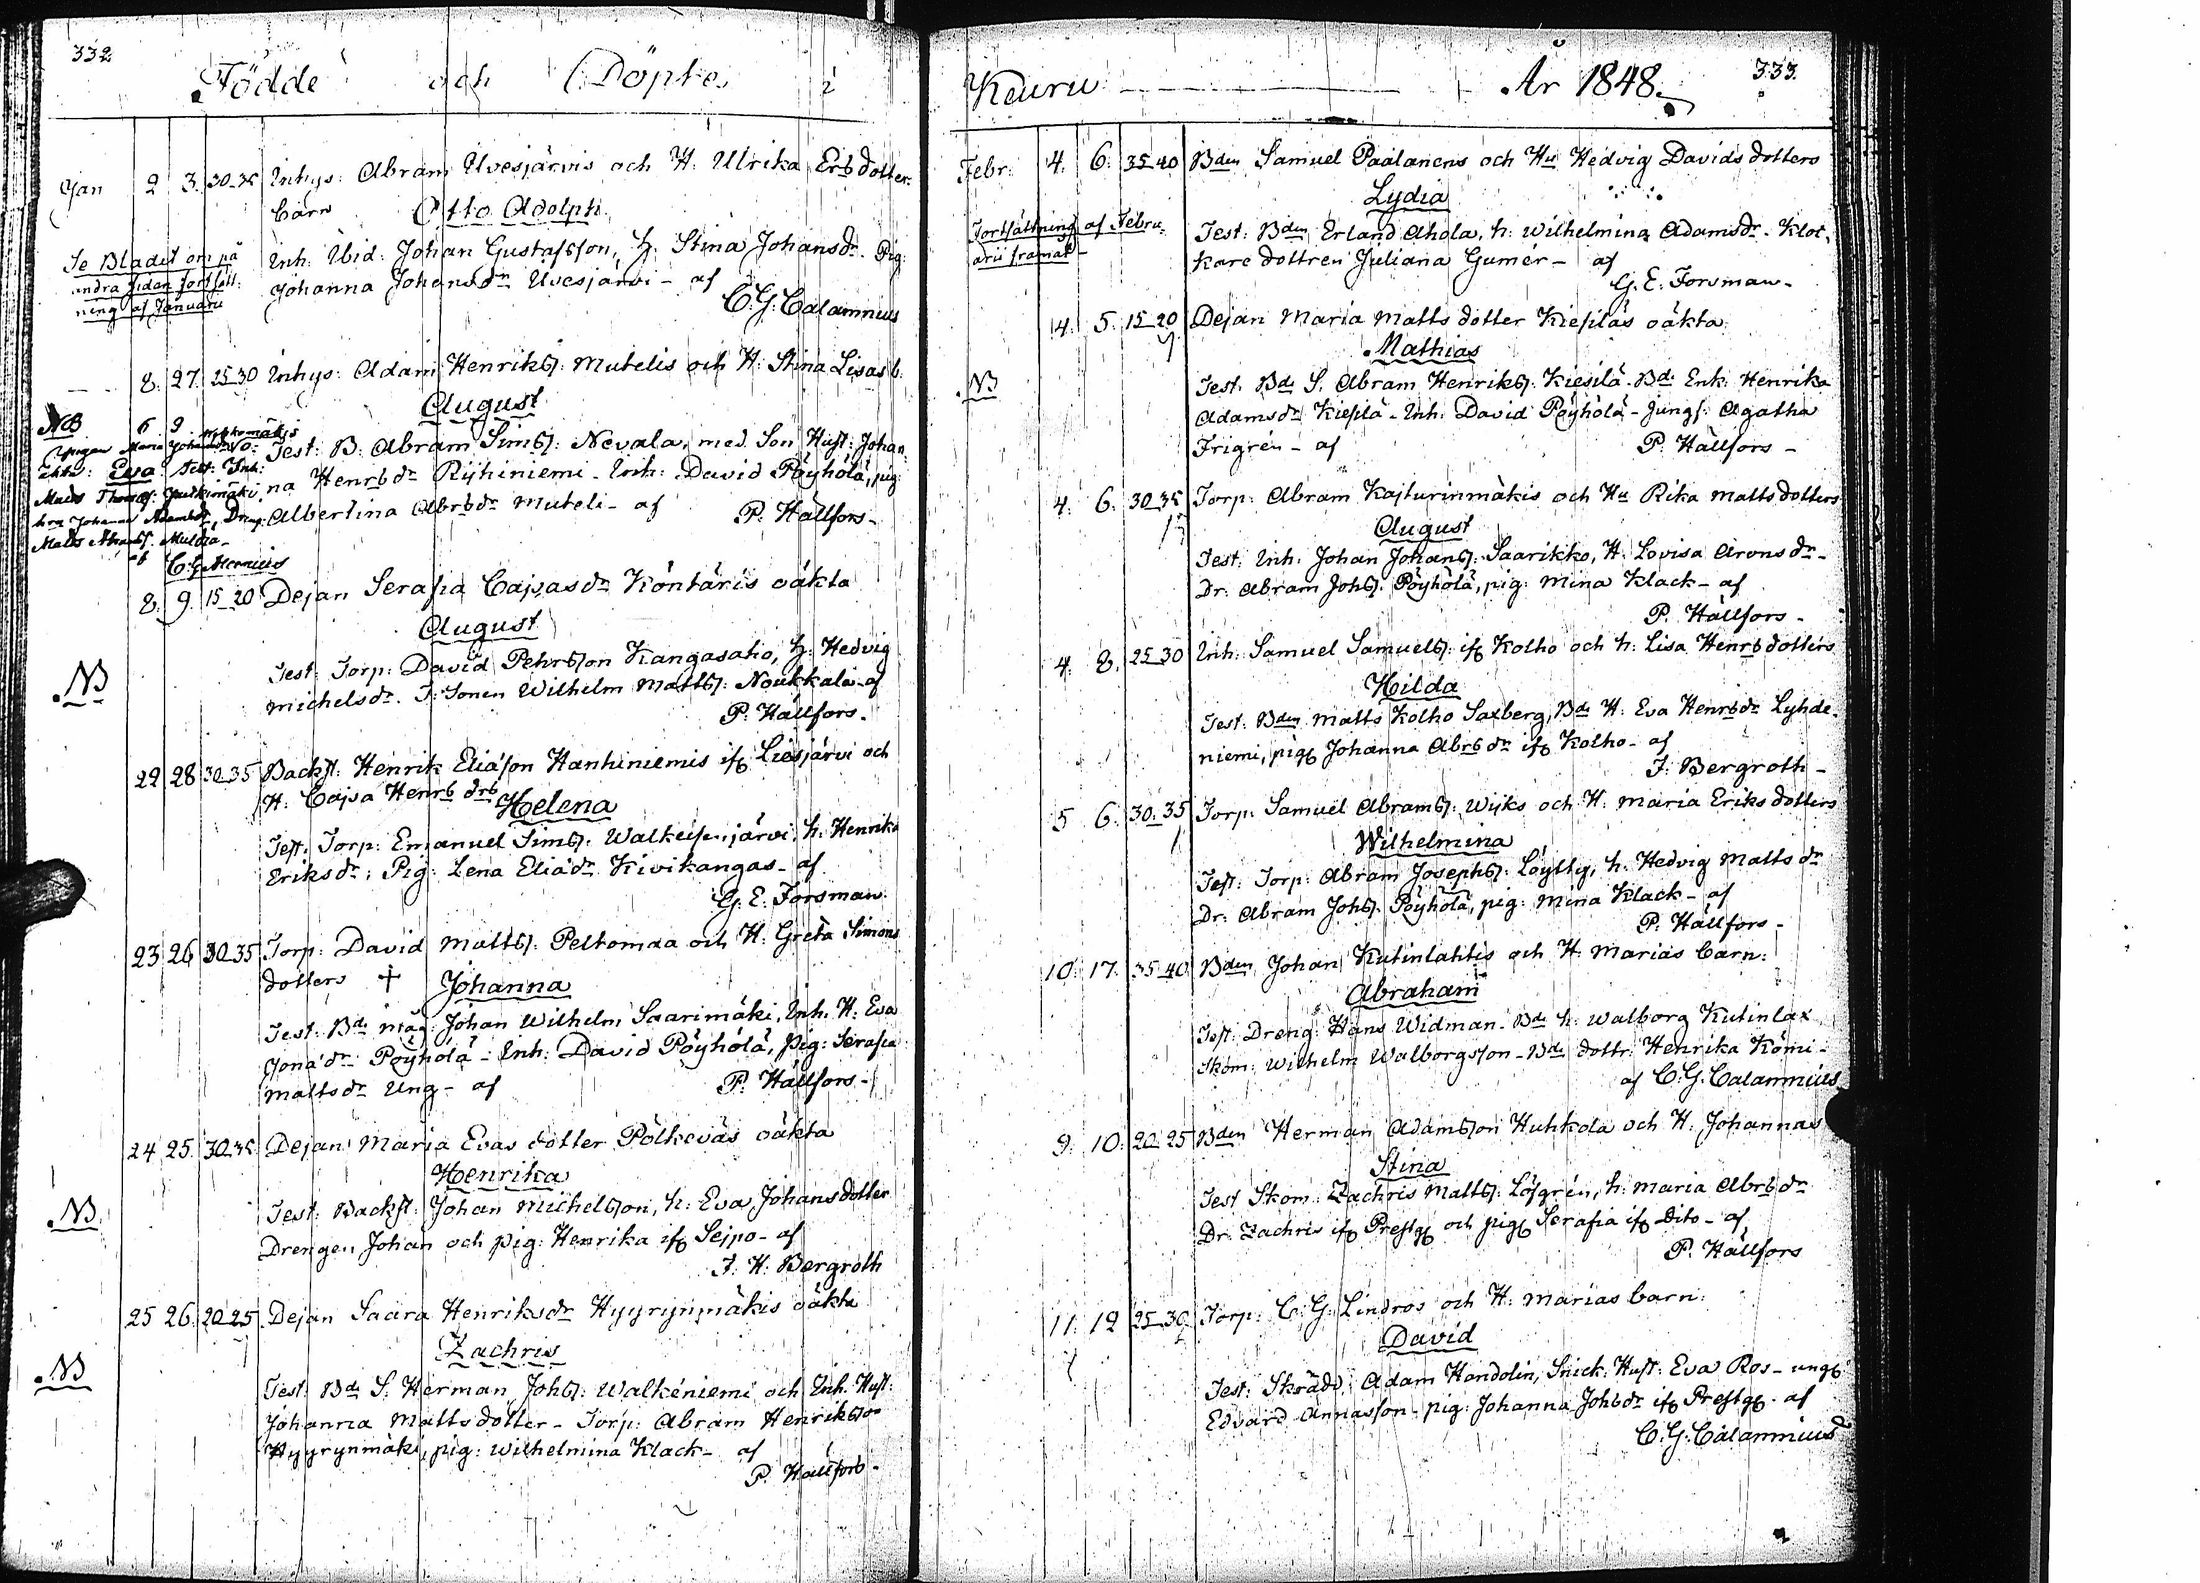 332
Födde och Döpte i
Jan 2 3. 30-35 Inhys: Abram Uvesjärvis och H. Ulrika Ersdotter:
barn Otto Adolph
Inh: Ibid: Johan Gustafsson, h. Stina Johansdr. Pig:
Johanna Johansdr Uvesjärvi - af
C. G. Calamnius
Se Bladet om på
andra sidan fortsätt:
ning af Januarii
8. 27. 25-30 Inhys: Adam Henrikss: Mutelis och H: Stina Lisas b:
August
Test: B: Abram Sims: Nevala, med Son Hust: Johan
na Henrsdr Ryhiniemi - Inh: David Pöyhölä, pig:
Albertina Abrsdr Muteli - af
P. Hällfors -
NB 6 9
Pigan Maria Johansdr
äkta: Eva Test: Inh:
Mats Thomas:
Johanna Adamsdr, Dreng:
Matts Abrams: Muldia -
af C. G. Alcenius
8. 9. 15-20 Dejan Serafia Cajsasdr Köntäris oäkta
August
NB
Test: Torp: David Pehrsson Kangasaho, h: Hedvig
Michelsdr. T: Sonen Wilhelm Matts: Noukkala - af
P. Hällfors.
22 28 30-35 Backst: Henrik Eliasson Hanhiniemis if Liesjärvi och
H: Cajsa Henrs drs
Helena
Test: Torp: Emanuel Sims: Walkeisenjärvi, h: Henrika
Eriksdr; Pig: Lena Eliædr Kivikangas - af
G. E. Forsman.
23 26 30-35 Torp: David Matts: Peltomaa och H: Greta Simons
dotters † Johanna
Test: Bds måg: Johan Wilhelm Saarimäki, Inh. H: Eva
Jonædr Pöyhölä - Inh: David Pöyhölä, Pig: Serafia
Mattsdr Ung - af
P. Hällfors -
24 25. 30-35 Dejan Maria Evas dotter Pölkeväs oäkta
Henrika
NB.
Test: Backst: Johan Michelsson, h: Eva Johansdotter
Drengen Johan och pig: Henrika if Seipo - af
F. H. Bergroth
25 26. 20-25 Dejan Saara Henriksdr Hyyrynmäkis oäkta
Zachris
NB
Test: Bds S: Herman Johs: Walkeniemi och Inh. Hust:
Johanna Mattsdotter - Torp: Abram Henriksson
Hyyrynmäki, pig: Wilhelmina Klack - af
P. Hällfors -
Keuru År 1848. 333.
Febr: 4. 6. 35-40 Bden Samuel Paalanens och Hu Hedvig Davidsdotters
Lydia
Fortsättning af Febru
arii framåt -
Test: Bden Erland Ahola, h: Wilhelmina Adamsdr. Kloc
kare dottren Juliana Gumér - af
G. E. Forsman -
4. 5. 15-20 Dejan Maria Matts dotter Kiesiläs oäkta:
Mathias
NB
Test: Bds S. Abram Henriks: Kiesilä. Bds Enk: Henrika
Adamsdr Kiesilä - Inh: David Pöyhölä - Jungf: Agatha
Frigrén - af
P. Hällfors -
4. 6. 30-35 Torp: Abram Kaiturinmäkis och Hu Rika Mattsdotters
August
Test: Inh: Johan Johans: Saarikko, H: Lovisa Aronsdr -
Dr: Abram Johs: Pöyhölä, pig: Mina Klack - af
P. Hällfors -
4. 8. 25-30 Inh: Samuel Samuels: if Kolho och h: Lisa Henrsdotters
Hilda
Test: Bden Matts Kolho Saxberg, Bds H: Eva Henrsdr Lyhde-
niemi, pig Johanna Abrsdr if Kolho - af
F: Bergroth -
5 6. 30-35 Torp: Samuel Abrams: Wijks och H: Maria Eriksdotters
Wilhelmina
Test: Torp: Abram Josephs: Löytty, h: Hedvig Mattsdr
Dr: Abram Johs: Pöyhölä, pig: Mina Klack - af
P. Hällfors -
10. 17. 35-40 Bden Johan Kutinlahtis och H: Marias barn:
Abraham
Test: Dreng: Hans Widman - Bds h: Walborg Kutinlax
Skom: Wilhelm Walborgsson - Bds dottr: Henrika Kömi -
af C. G. Calamnius
9. 10. 20-25 Bden Herman Adamsson Huhkola och H: Johannas
Stina
Test Skom: Zachris Matts: Löfgrén, h: Maria Abrsdr
Dr: Zachris if Prestg och pig Serafia if Dito - af
P. Hällfors
11. 12 25-30 Torp: C. G: Lindros och H: Marias barn:
David
Test: Skrädd: Adam Handolin, Snick: Hust: Eva Ros - ung
Edvard Annasson - pig: Johanna Johsdr if Prestg - af
C. G. Calamnius